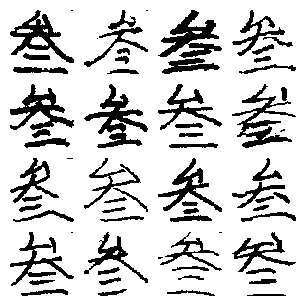 叁叁叁叁
叁叁叁叁
叁叁叁叁
叁叁叁叁